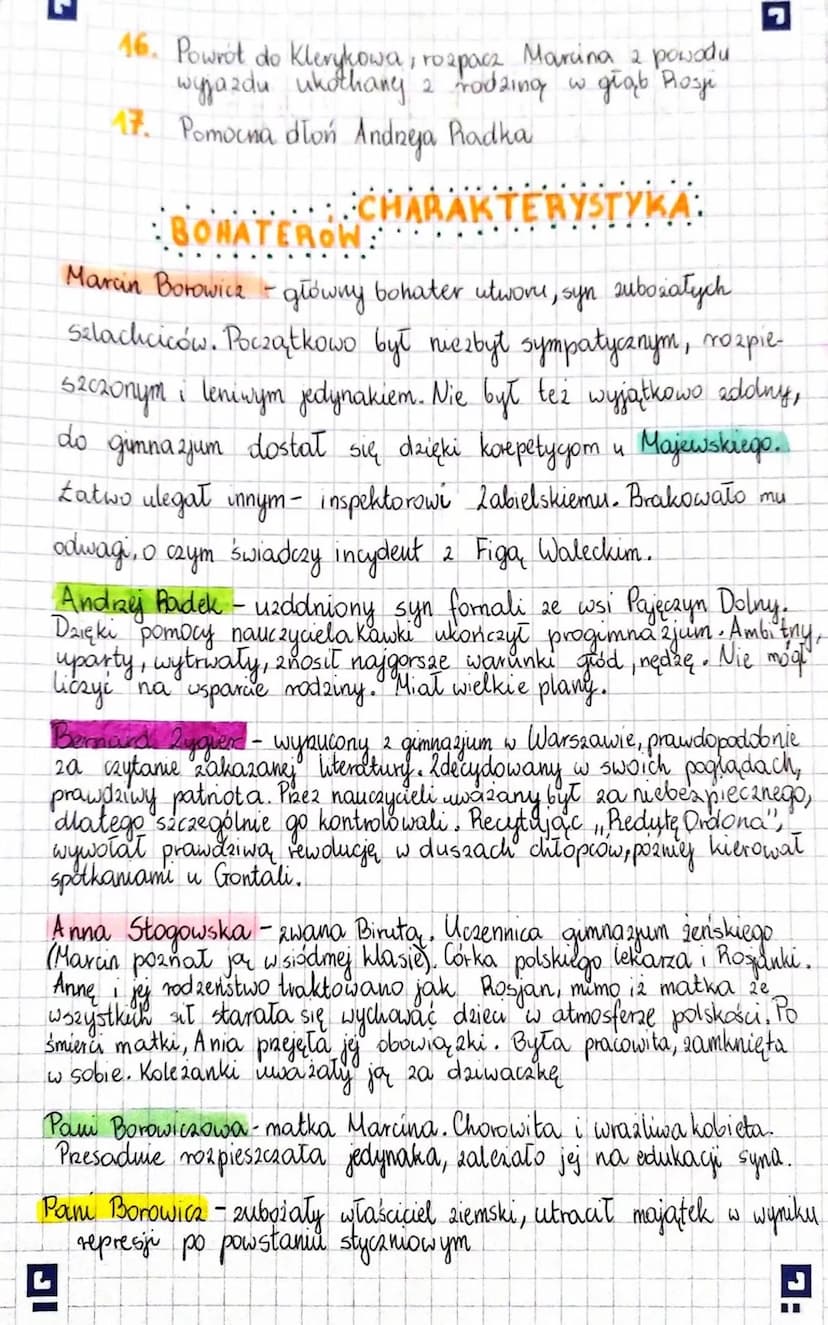 16. Powrót do Klerykowa, rozpacz Marcina z powodu
wyjazdu ukochanej z rodziną w głąb Rosji
17. Pomocna dłoń Andrzeja Radka
CHARAKTERYSTYKA
BOHATERÓW
Marcin Borowicz - główny bohater utworu, syn zubożałych
szlachciców. Początkowo był niezbyt sympatycznym, rozpie-
szczonym i leniwym jedynakiem. Nie był też wyjątkowo zdolny,
do gimnazjum dostał się dzięki korepetycjom u Majewskiego.
Łatwo ulegał innym - inspektorowi Zabielskiemu. Brakowało mu
odwagi, o czym świadczy incydent z Figą Waleckim.
Andrzej Radek - uzdolniony syn fornali ze wsi Pajęczyn Dolny.
Dzięki pomocy nauczyciela Kawki ukończył progimnazjum. Ambitny,
uparty, wytrwały, znosił najgorsze warunki głód, nędzę. Nie mógł
liczyć na wsparcie rodziny. Miał wielkie plany.
Bernard Zygier - wyrzucony z gimnazjum w Warszawie, prawdopodobnie
za czytanie zakazanej literatury. Zdecydowany w swoich poglądach,
prawdziwy patriota. Przez nauczycieli uważany był za niebezpiecznego,
dlatego szczególnie go kontrolowali. Recytując „Redutę Ordona",
wywołał prawdziwą rewolucję w duszach chłopców, później kierował
spotkaniami u Gontali.
Anna Stogowska - zwana Birutą. Uczennica gimnazjum żeńskiego
(Marcin poznał ją w siódmej klasie). Córka polskiego lekarza i Rosjanki.
Annę i jej rodzeństwo traktowano jak Rosjan, mimo iż matka ze
wszystkich sił starała się wychować dzieci w atmosferze polskości. Po
śmierci matki, Ania przejęła jej obowiązki. Była pracowita, zamknięta
w sobie. Koleżanki uważały ją za dziwaczkę
Pani Borowiczowa - matka Marcina. Chorowita i wrażliwa kobieta.
Przesadnie rozpieszczała jedynaka, zależało jej na edukacji syna.
Pani Borowicz - zubożały właściciel ziemski, utracił majątek w wyniku
represji po powstaniu styczniowym